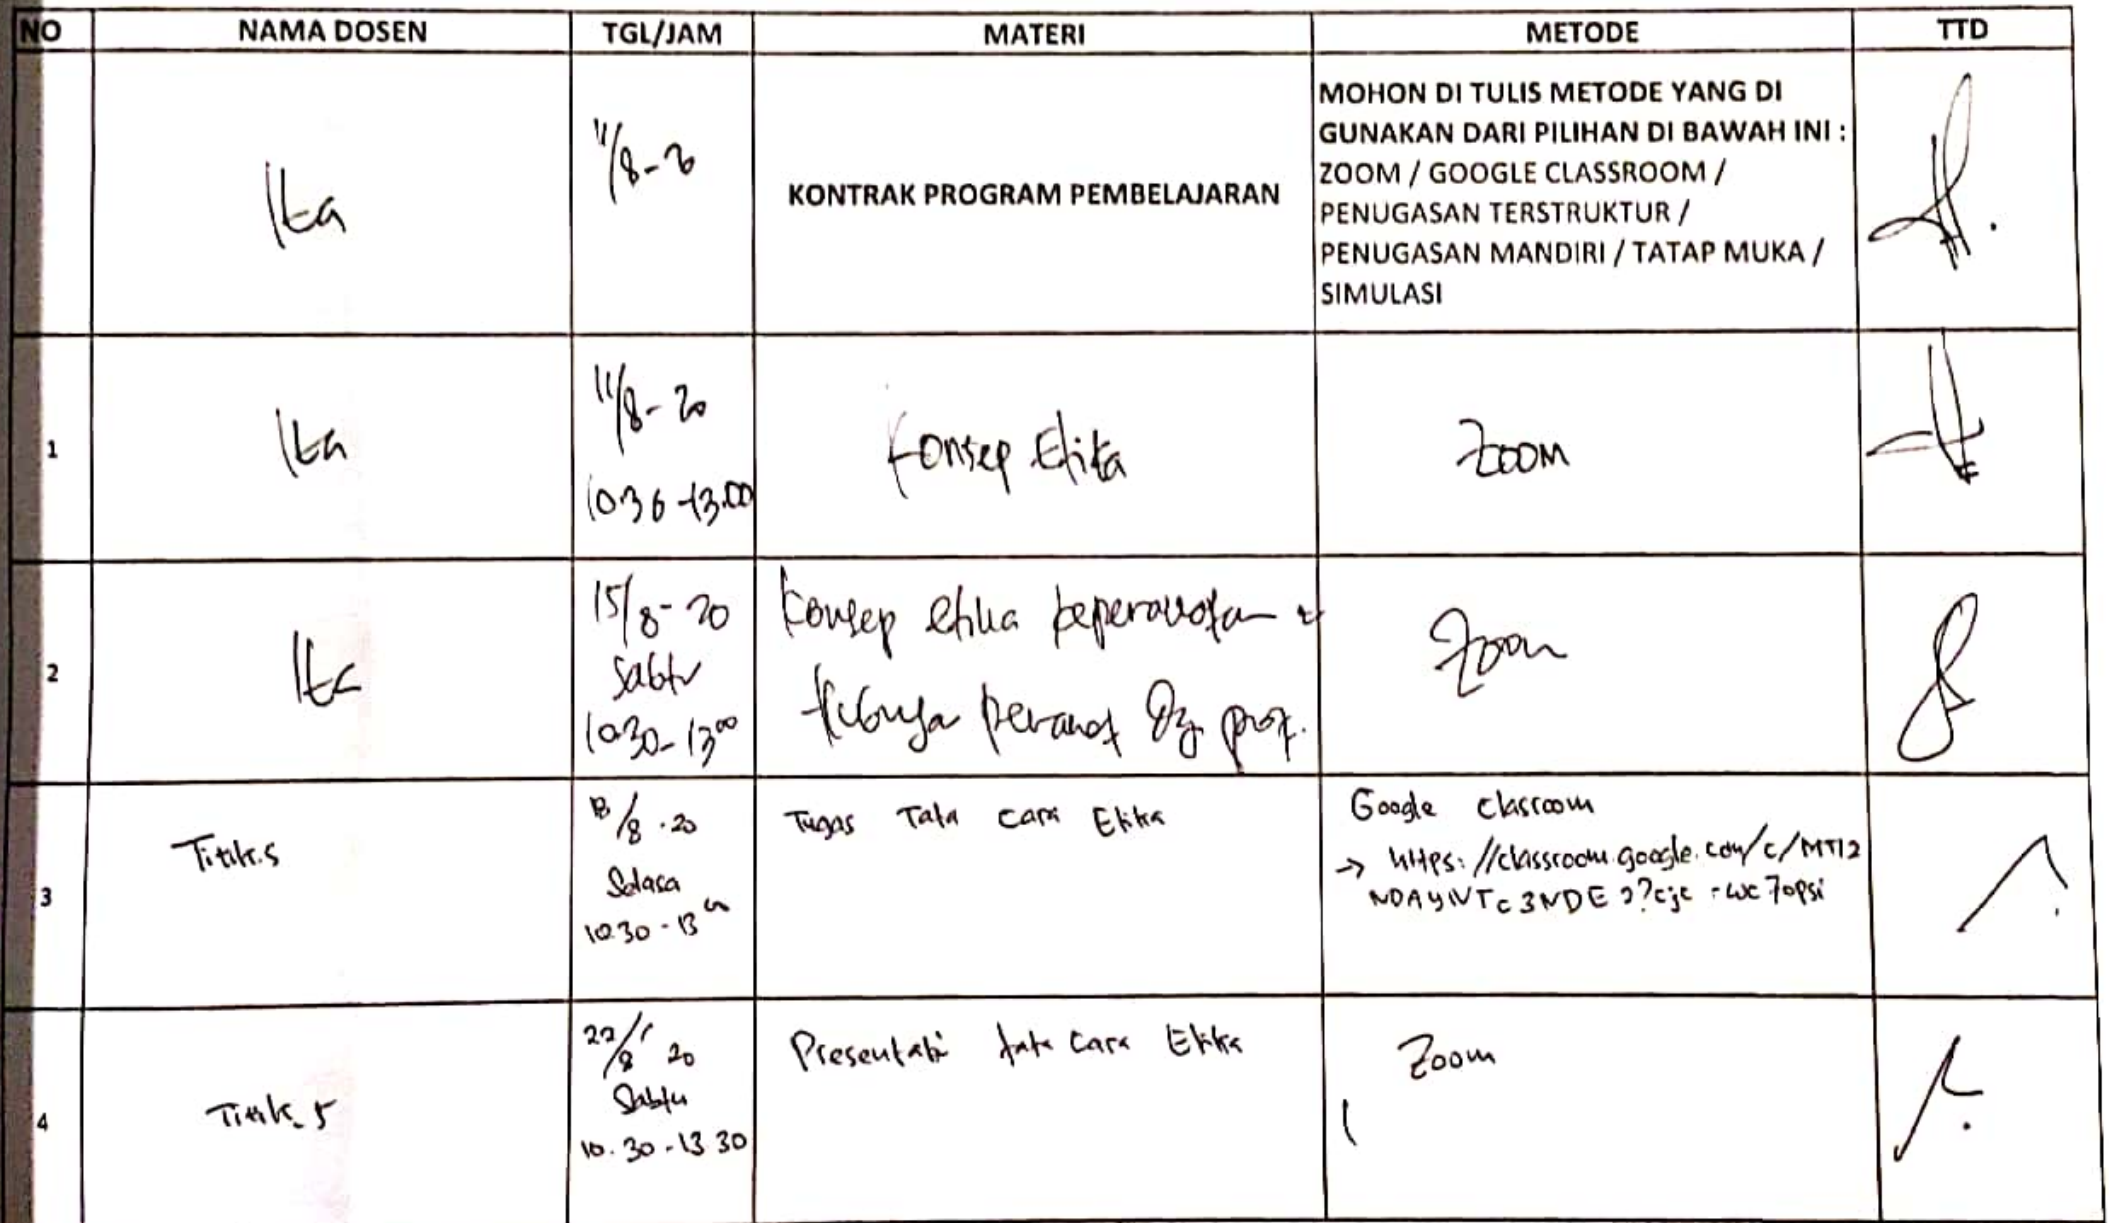 NO NAMA DOSEN TGL/JAM MATERI METODE TTD
Ita
11/8-20
KONTRAK PROGRAM PEMBELAJARAN
MOHON DI TULIS METODE YANG DI
GUNAKAN DARI PILIHAN DI BAWAH INI :
ZOOM / GOOGLE CLASSROOM /
PENUGASAN TERSTRUKTUR /
PENUGASAN MANDIRI / TATAP MUKA /
SIMULASI
1
Ita
11/8-20
10.30-13.00
Konsep Etika
Zoom
2
Ita
15/8-20
Sabtu
10.30-13.00
Konsep etika keperawatan
perawat prof.
Zoom
3
Titik.S
18/8.20
Selasa
10.30-13
Tugas Tata Cara Etika
Google Clasroom
→ https://classroom.google.com/c/MTI2
4
Titik.S
22/8 20
Sabtu
10.30-13 30
Presentasi tata Cara Etika
Zoom